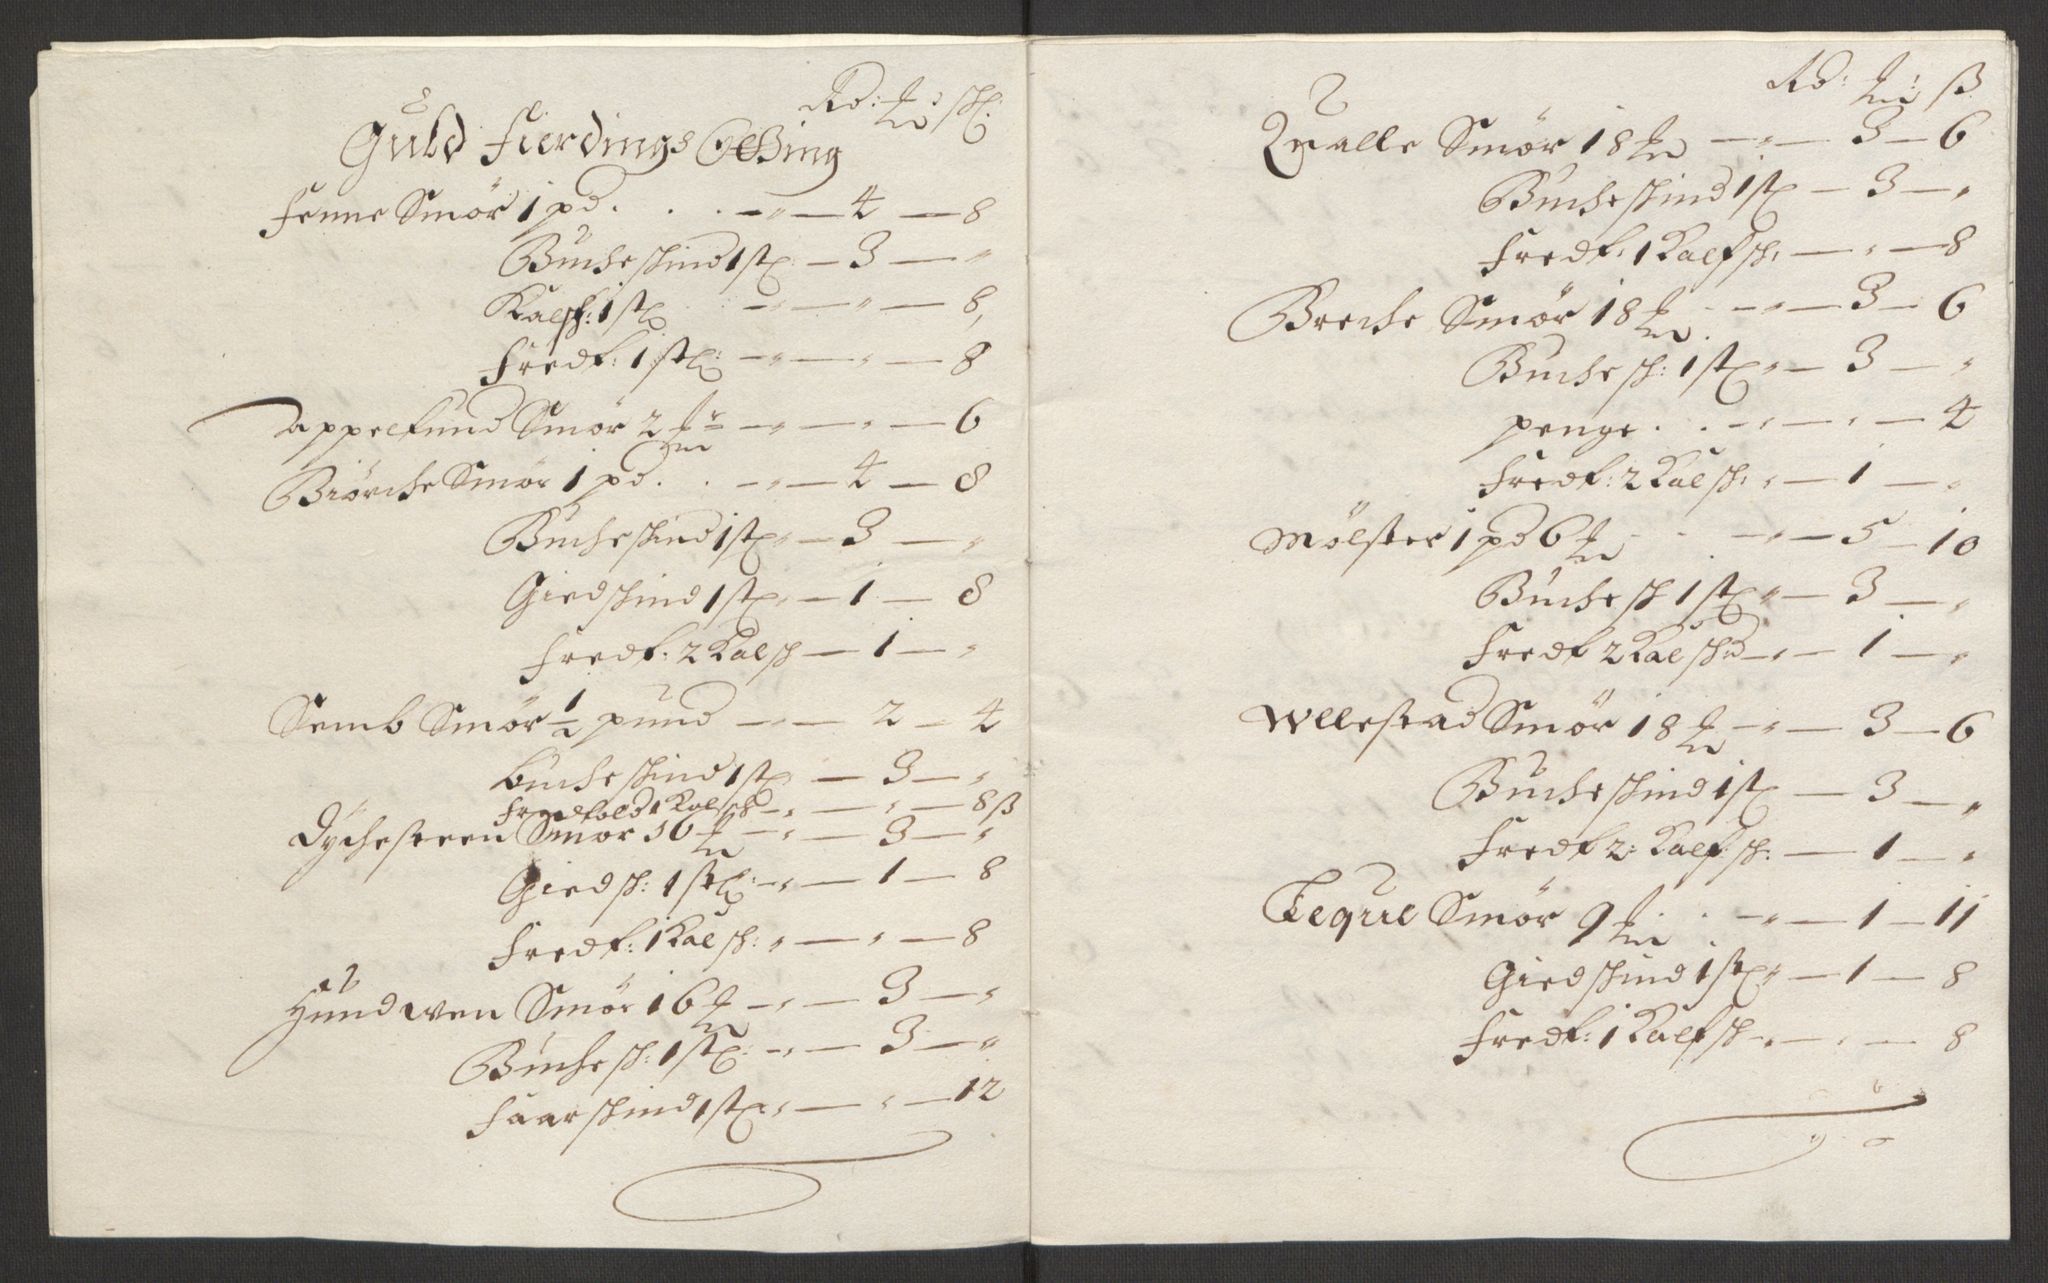 Rd: ₰: sk:
Guld Fierdings Otting
Fenne Smør 1 pd. . . . — " — 4 — 8
Buckeskind 1 st: — 3 — "
Kalsk: 1 st — " — " — 8,
Fredk: 1 stk: — " — " — 8
Tappelfund Smør 2 — " — " — 6
Biørcke Smør 1 pd. . . — " — 4 — 8
Buckeskind 1 st — 3 — "
Giedskind 1 st — 1 — 8
Fredf: 2 Kalsk — 1 — "
Semb Smør ½ pund — " — 2 — 4
Buckeskind 1 st — 3 — "
Fredfold 1 Kalsk — " — " — 8 ß
Dÿchesteen Smør 16 — " — 3 — "
Giedsk: 1 stk: — " — 1 — 8
Fredf: 1 Kalsk: " — " — 8
Hundwen Smør 16 — " — 3 — "
Buckesk: 1 st: — " — 3 — "
Faarskind 1 st: " — " — 12
Rd: ₰: ß
Qualle Smør 18 — " — 3 — 6
Buckeskind 1 st — 3 — "
Fredf: 1 Kalfsk: — " — 8
Brecke Smør 18 . — " — 3 — 6
Buckesk: 1 st " — 3 — "
penge . . — " — " — 4
Fredf: 2 Kalsk: " — 1 — "
Mølster 1 pd 6 . . — " — 5 — 10
Buckesk 1 st " — 3 — "
Fredf 2 Kalskd — " — 1 — "
Wllestad Smør 18 — " — 3 — 6
Buckeskind 1 st — 3 — "
Fredf 2: Kalf: sk: — 1 — "
Smør 9 . . — " — 1 — 11
Giedskind 1 st " — 1 — 8
Fredf: 1 Kalfsk — " — " — 8